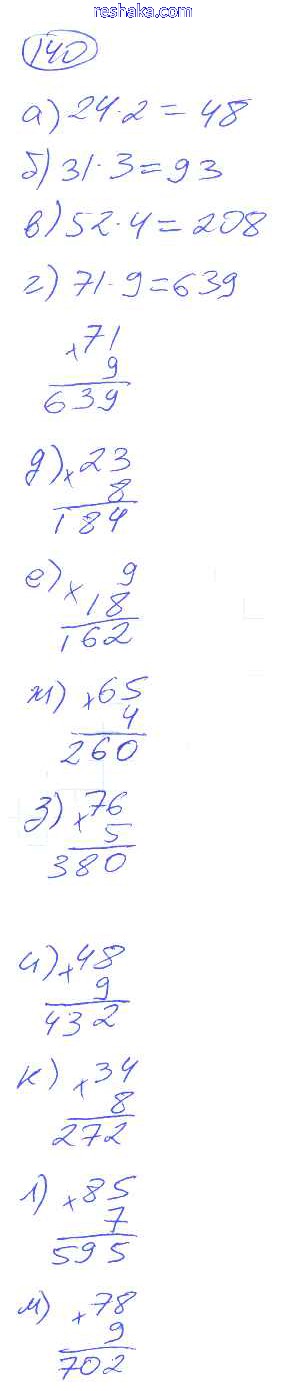 reshaka.com
140
а) 24·2 = 48
б) 31·3 = 93
в) 52·4 = 208
г) 71·9 = 639
×71
9
639
д) ×23
8
184
е) × 9
18
162
ж) ×65
4
260
з) ×76
5
380
и) ×48
9
432
к) ×34
8
272
л) ×85
7
595
м) ×78
9
702